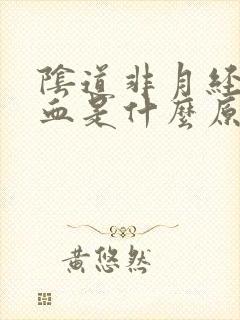 陰道非月經
血是什麼原
黃悠然